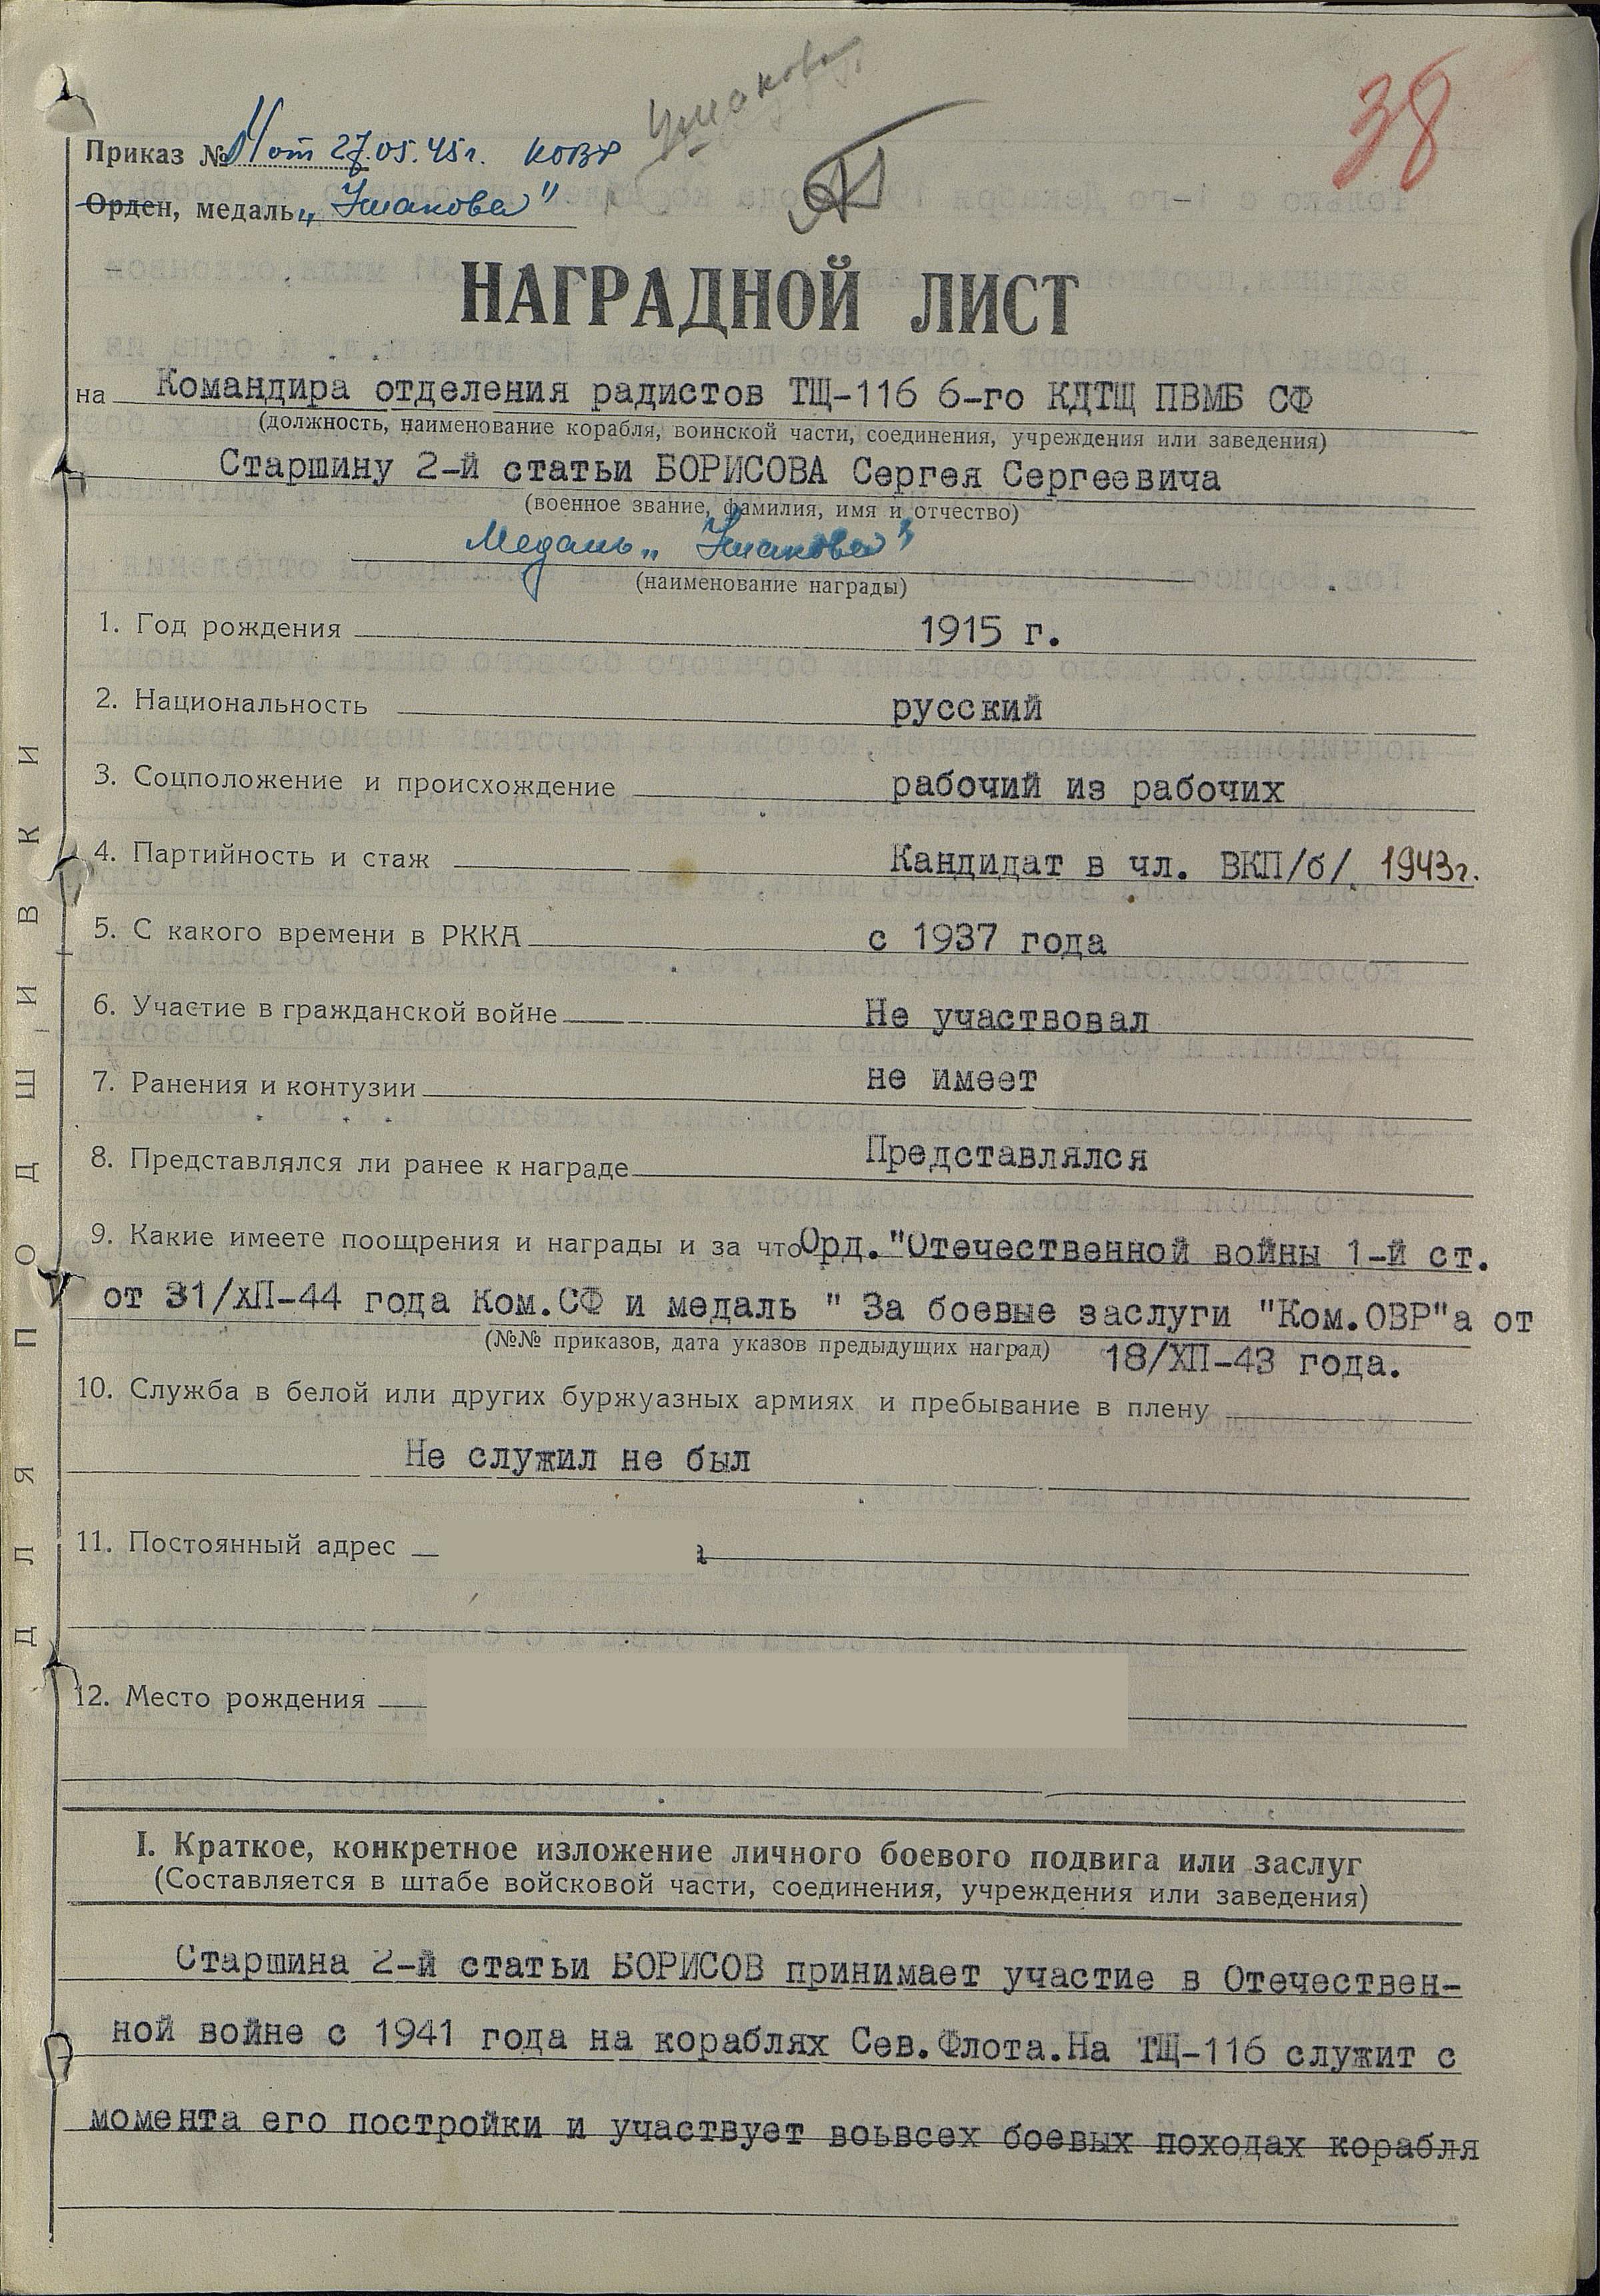 Ушакова
38
Приказ № 11 от 27.05.45 г. КОВР
Орден, медаль „Ушакова"
НАГРАДНОЙ ЛИСТ
на Командира отделения радистов ТЩ-116 6-го КДТЩ ПВМБ СФ
(должность, наименование корабля, воинской части, соединения, учреждения или заведения)
Старшину 2-й статьи БОРИСОВА Сергея Сергеевича
(военное звание, фамилия, имя и отчество)
Медаль „Ушакова"
(наименование награды)
1. Год рождения 1915 г.
2. Национальность русский
3. Соцположение и происхождение рабочий из рабочих
4. Партийность и стаж Кандидат в чл. ВКП/б/. 1943г.
5. С какого времени в РККА с 1937 года
6. Участие в гражданской войне Не участвовал
7. Ранения и контузии не имеет
8. Представлялся ли ранее к награде Представлялся
9. Какие имеете поощрения и награды и за что Орд."Отечественной войны 1-й ст.
от 31/ХП-44 года Ком.СФ и медаль " За боевые заслуги "Ком.ОВР"а от
(№№ приказов, дата указов предыдущих наград) 18/ХП-43 года.
10. Служба в белой или других буржуазных армиях и пребывание в плену
Не служил не был
11. Постоянный адрес
12. Место рождения
I. Краткое, конкретное изложение личного боевого подвига или заслуг
(Составляется в штабе войсковой части, соединения, учреждения или заведения)
Старшина 2-й статьи БОРИСОВ принимает участие в Отечествен-
ной войне с 1941 года на кораблях Сев.Флота.На ТЩ-116 служит с
момента его постройки и участвует воьвсех боевых походах корабля
ДЛЯ ПОДШИВКИ